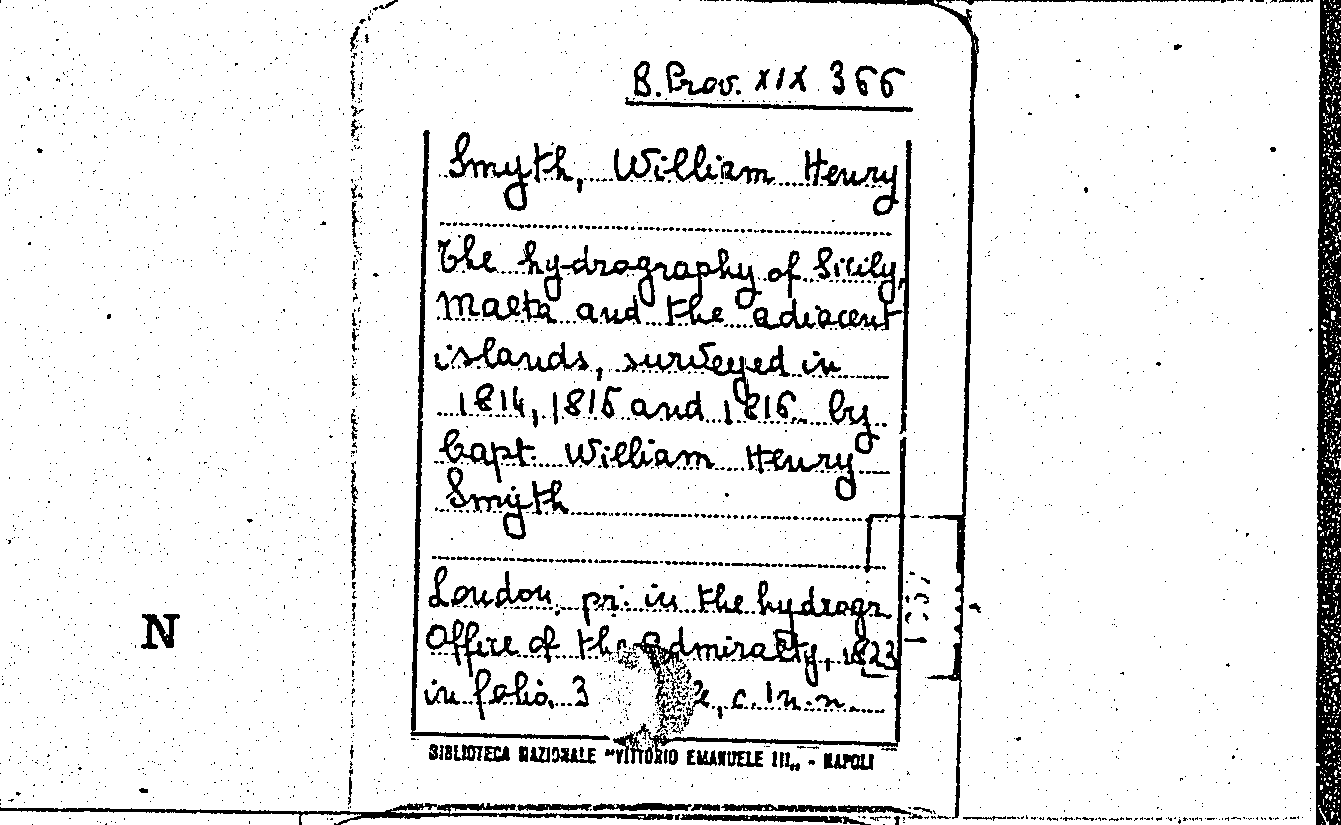 B. Prov. XIX 366
Smyth, William Henry
The hydrography of Sicily,
Malta and the adiacent
islands, surveyed in
1814, 1815 and 1816 by
Capt. William Henry
Smyth
London, pr. in the hydrogr.
Office of the Admiralty, 1823
in folio, 3 c. 1 n. n.
N
BIBLIOTECA NAZIONALE "VITTORIO EMANUELE III„ - NAPOLI